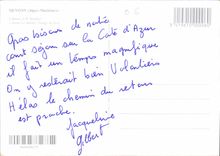 Gros bisous de notre
court séjour sur la Côte d'Azur
il fait un temps magnifique
On y resterait bien volontiers
Hélas le chemin du retour
est proche.
Jacqueline
Gilbert